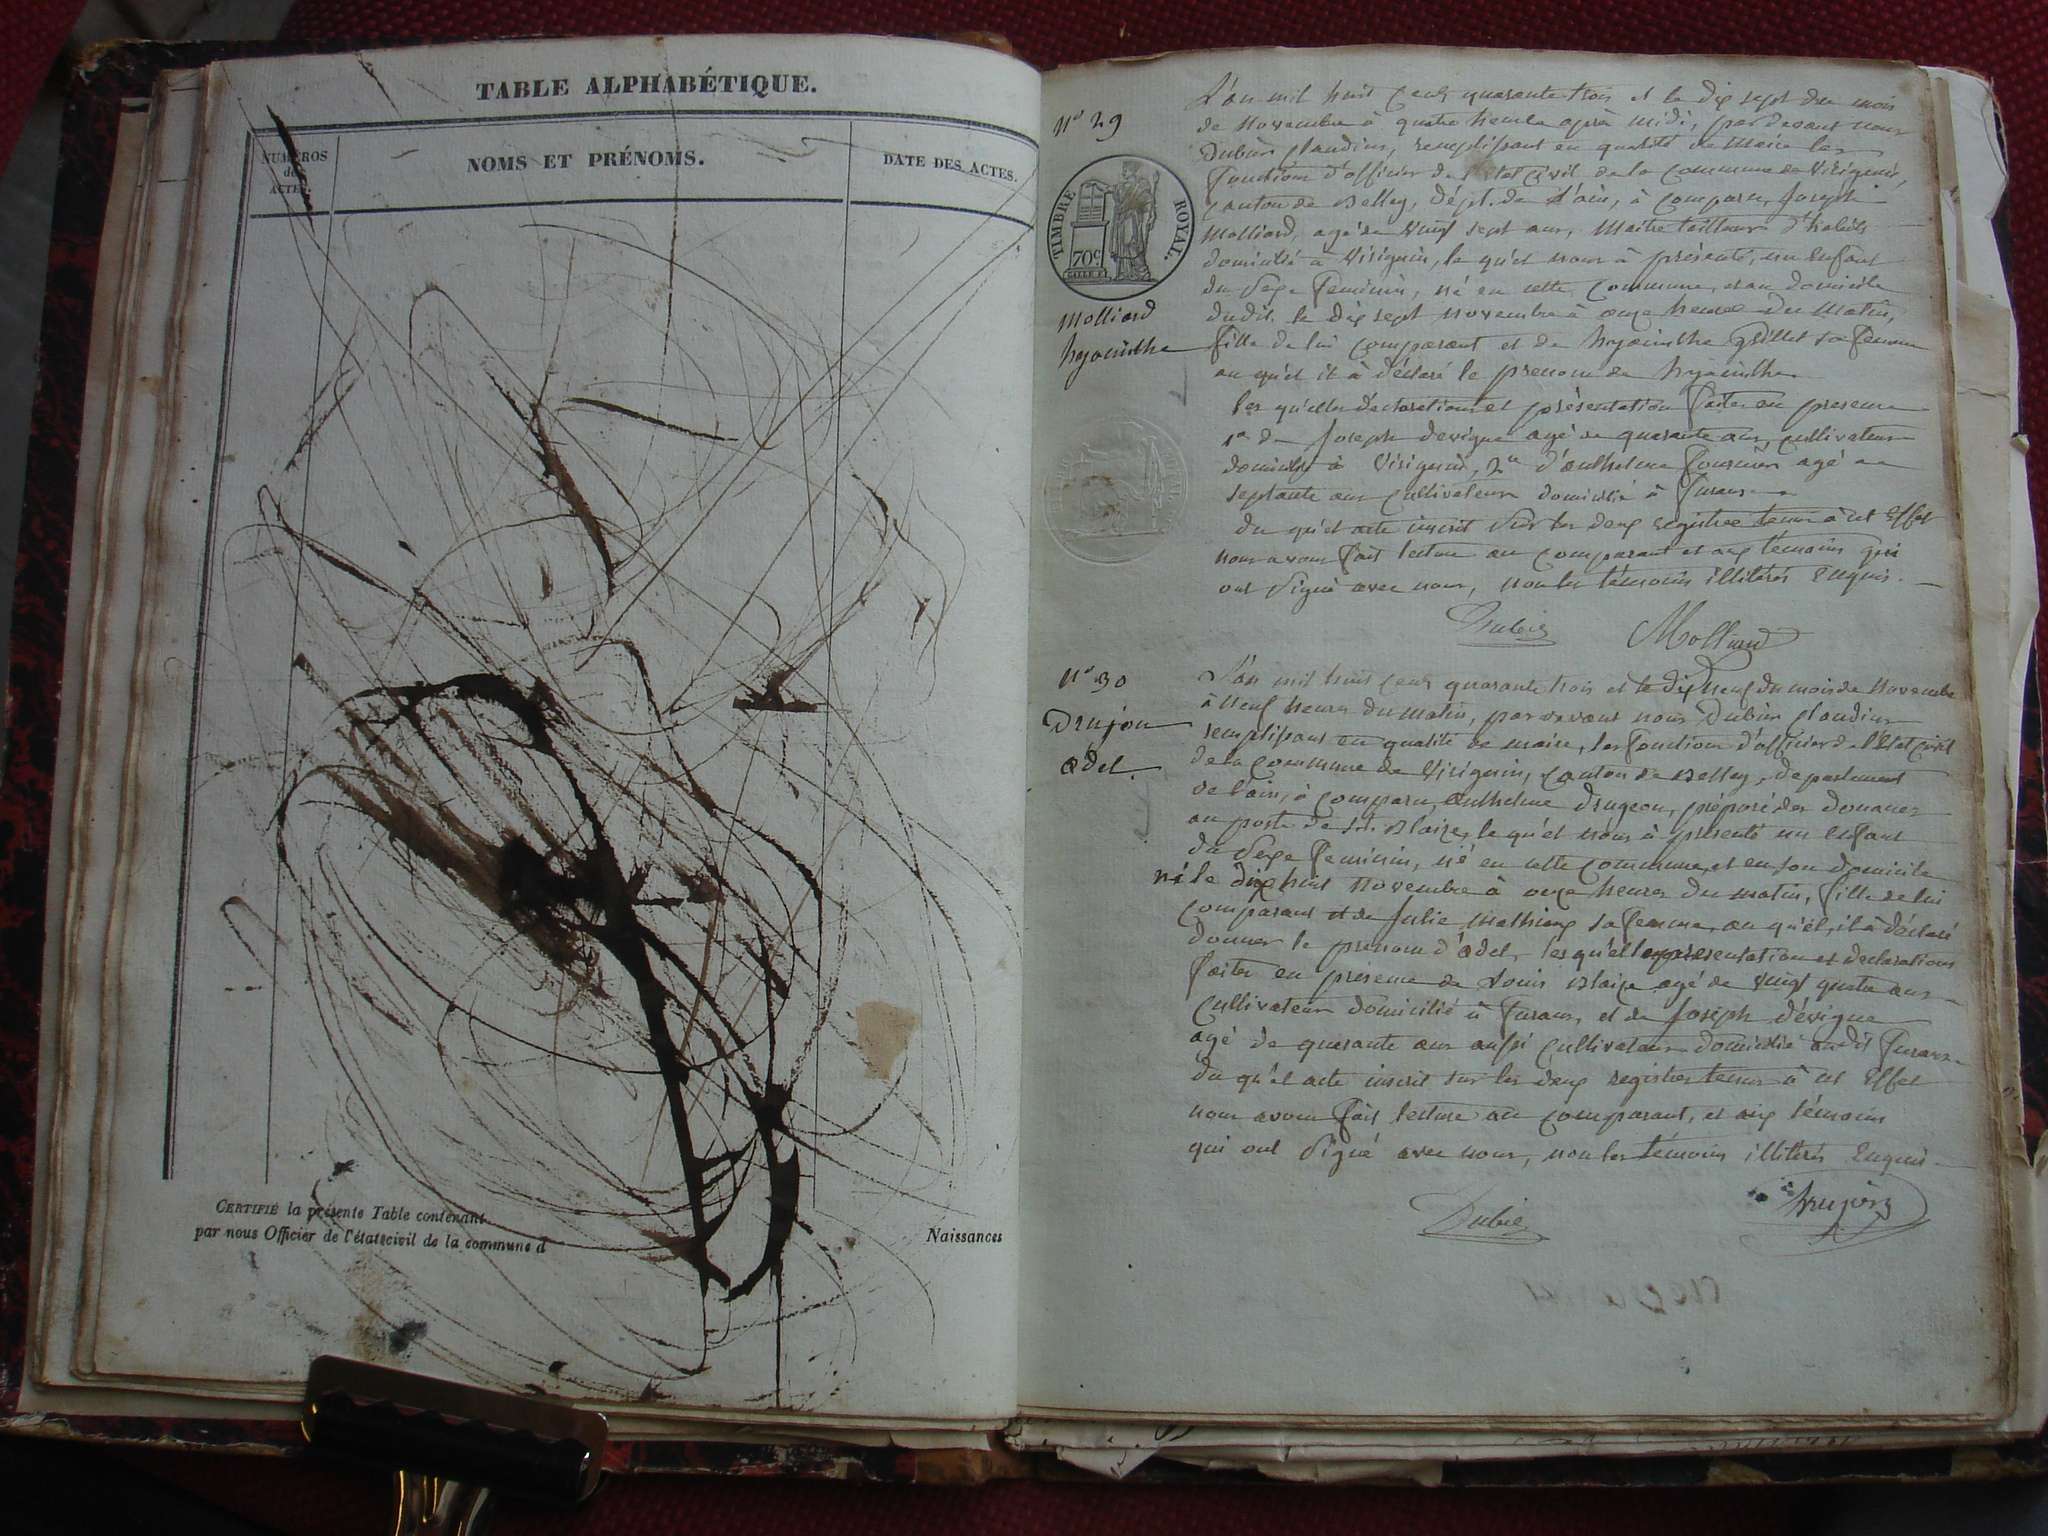 TABLE ALPHABÉTIQUE.
NUMÉROS
des
ACTES.
NOMS ET PRÉNOMS.
DATE DES ACTES.
CERTIFIÉ la présente Table contenant
par nous Officier de l'étatscivil de la commune d
Naissances
N° 29
TIMBRE ROYAL.
70c
Molliard
hyacinthe
L'an mil huit cent quarante trois et le dix sept du mois
de Novembre à quatre heures après midi, par devant nous
Dubier Claudius, remplissant en qualité de Maire les
fonctions d'officier de l'état Civil de la commune de Virignin,
Canton de Belley, dépt. de l'ain, à comparu, Joseph
Molliard, agé de vingt sept ans, Maitre tailleur d'habits
domicilié à Virignin, le qu'el nous à présenté, un Enfant
du Sexe Feminin, né en cette Commune, et au domicile
dudit le dix sept Novembre à onze heures du Matin,
fille de lui comparant et de hyacinthe Gillet sa femme
au qu'el il à déclaré le prenom de hyacinthe
les qu'elles déclarations et présentation faites en presence
1er de Joseph devigne agé de quarante ans, cultivateur
domicilié à Virignin, 2e d'anthelme Fournier agé de
septante ans cultivateur domicilié à Furans
du qu'el acte inscrit sur les deux registres tenus à cet Effet
nous avons fait lecture au comparant et aux témoins qui
ont Signé avec nous, non les témoins illitérés Enquis.
Dubier Molliard
N° 30
Drujon
adel
L'an mil huit cent quarante trois et le dix neuf du mois de Novembre
à Neuf heures du matin, par devant nous Dubier Claudius
remplissant en qualité de maire, les fonctions d'officier de l'Etat civil
de la commune de Virignin, Canton de Belley, departement
de l'ain, à comparu, anthelme drugeon, préposé des douanes
au poste de St. Blaize, le qu'el nous à présenté un Enfant
du Sexe Feminin, né en cette Commune, et en son domicile
né le dix huit Novembre à onze heures du matin, fille de lui
comparant et de Julie Mathieux sa femme, au qu'el, il à déclaré
donner le prenom d'adel, les qu'elles présentation et declarations
faites en présence de Louis Blaize agé de vingt quatre ans
Cultivateur domicilié à Furans, et de Joseph dévigne
agé de quarante ans aussi Cultivateur domicilié audit Furans
du qu'el acte inscrit sur les deux registres tenus à cet Effet
nous avons fait lecture au comparant, et aux témoins
qui ont Signé avec nous, non les témoins illitérés Enquis
Dubier Drujon